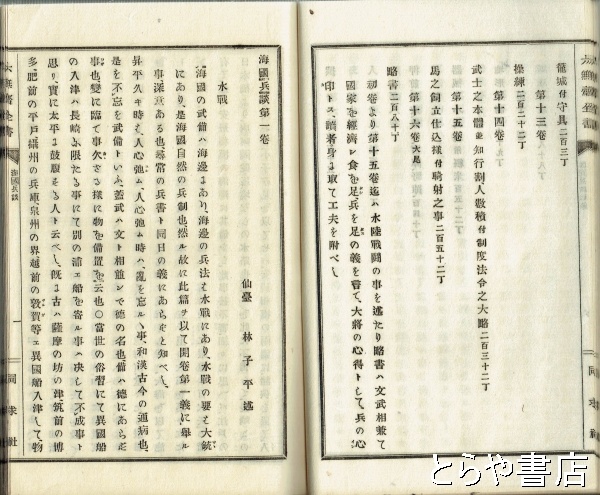 籠城付守具二百三丁
第十三卷
操練二百二十二丁
第十四卷
武士之本體並知行割人數積付制度法令之大略二百三十二丁
第十五卷
馬之飼立仕込樣付騎射之事二百五十二丁
第十六卷大尾
略書二百八十丁
初卷より第十五卷迄ハ水陸戰鬪の事を述たり略書ハ文武相兼て
國家を經濟し食を足兵を足の義を嘗て大將の心得トして兵の心
印トス、讀者身ニ取て工夫を附べし
海國兵談第一卷
仙臺 林子平述
水戰
海國の武備ハ海邊にあり、海邊の兵法ハ水戰にあり、水戰の要ハ大銃
にあり、是海國自然の兵制也然ル故に此篇ヲ以て開卷第一義に擧ル
事、深意ある也尋常の兵書ト同日の義にあらずと知べし
昇平久キ時ハ人心弛ム、人心弛ム時ハ、亂を忘ル丶事、和漢古今の通病也、
是を不忘を武備トいふ、蓋武ハ文ト相並ンで德の名也備ハ德にあらず
事也、變に臨て事欠さる樣に物を備置を云也〇當世の俗習にて異國船
の入津ハ長崎に限たる事にて別の浦江船を寄ル事ハ決して不成事ト
思り、實に太平に鼓腹する人ト云べし、既に古ハ薩摩の坊の津筑前の博
多、肥前の平戶攝州の兵庫泉州の界越前の敦賀等江異國船入津して物
海國兵談
一
同求社
とらや書店